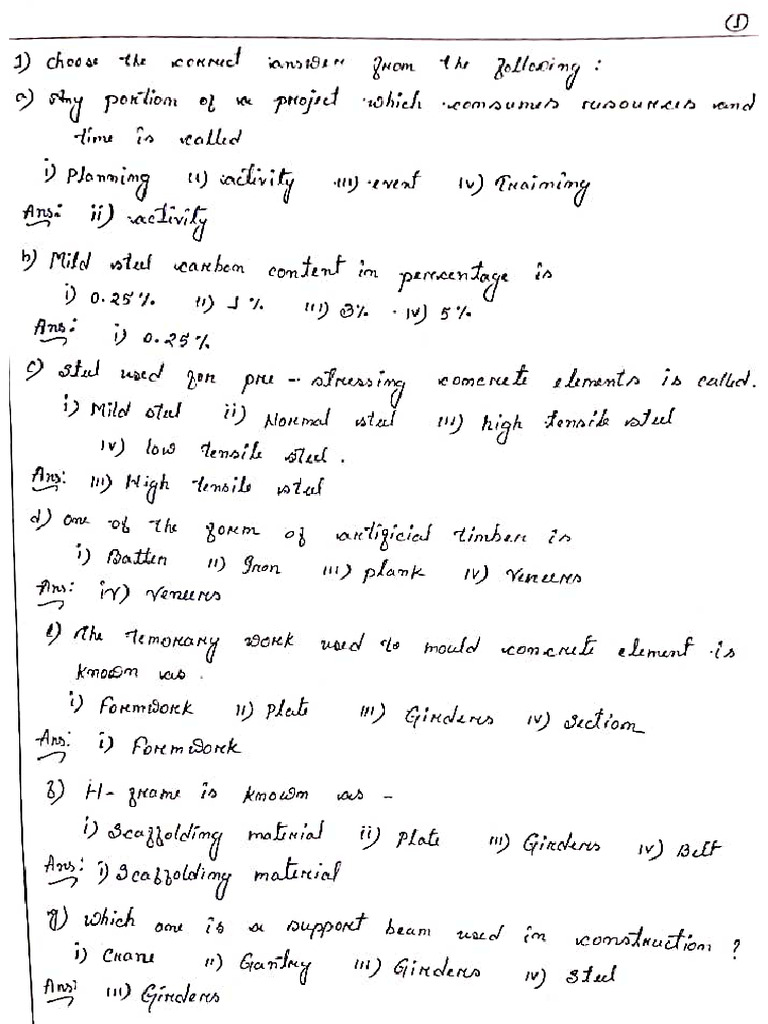 (1)
1) Choose the correct answer from the following :
a) Any portion of a project which consumes resources and
time is called
i) Planning ii) activity iii) event iv) Training
Ans: ii) activity
b) Mild steel carbon content in percentage is
i) 0.25% ii) 1% iii) 3% iv) 5%
Ans: i) 0.25%
c) Steel used for pre-stressing concrete elements is called.
i) Mild steel ii) Normal steel iii) high tensile steel
iv) low tensile steel.
Ans: iii) High tensile steel
d) One of the form of artificial timber is
i) Batten ii) Iron iii) plank iv) Veneers
Ans: iv) veneers
e) The temorary work used to mould concrete element is
known as.
i) Formwork ii) Plate iii) Girders iv) Section
Ans: i) Formwork
f) H-frame is known as -
i) Scaffolding material ii) Plate iii) Girders iv) Belt
Ans: i) Scaffolding material
g) Which one is a support beam used in construction ?
i) Crane ii) Gantry iii) Girders iv) Steel
Ans: iii) Girders